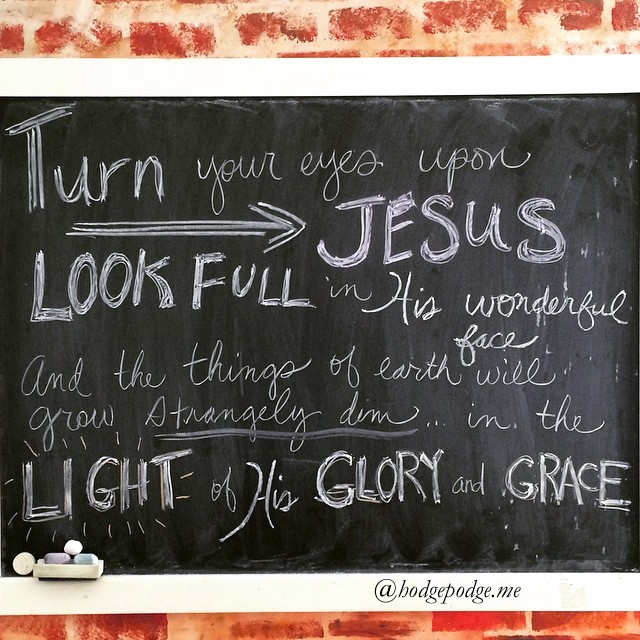 Turn your eyes upon
JESUS
LOOK FULL in His wonderful
face
And the things of earth will
grow strangely dim... in the
LIGHT of His GLORY and GRACE
@hodgepodge.me